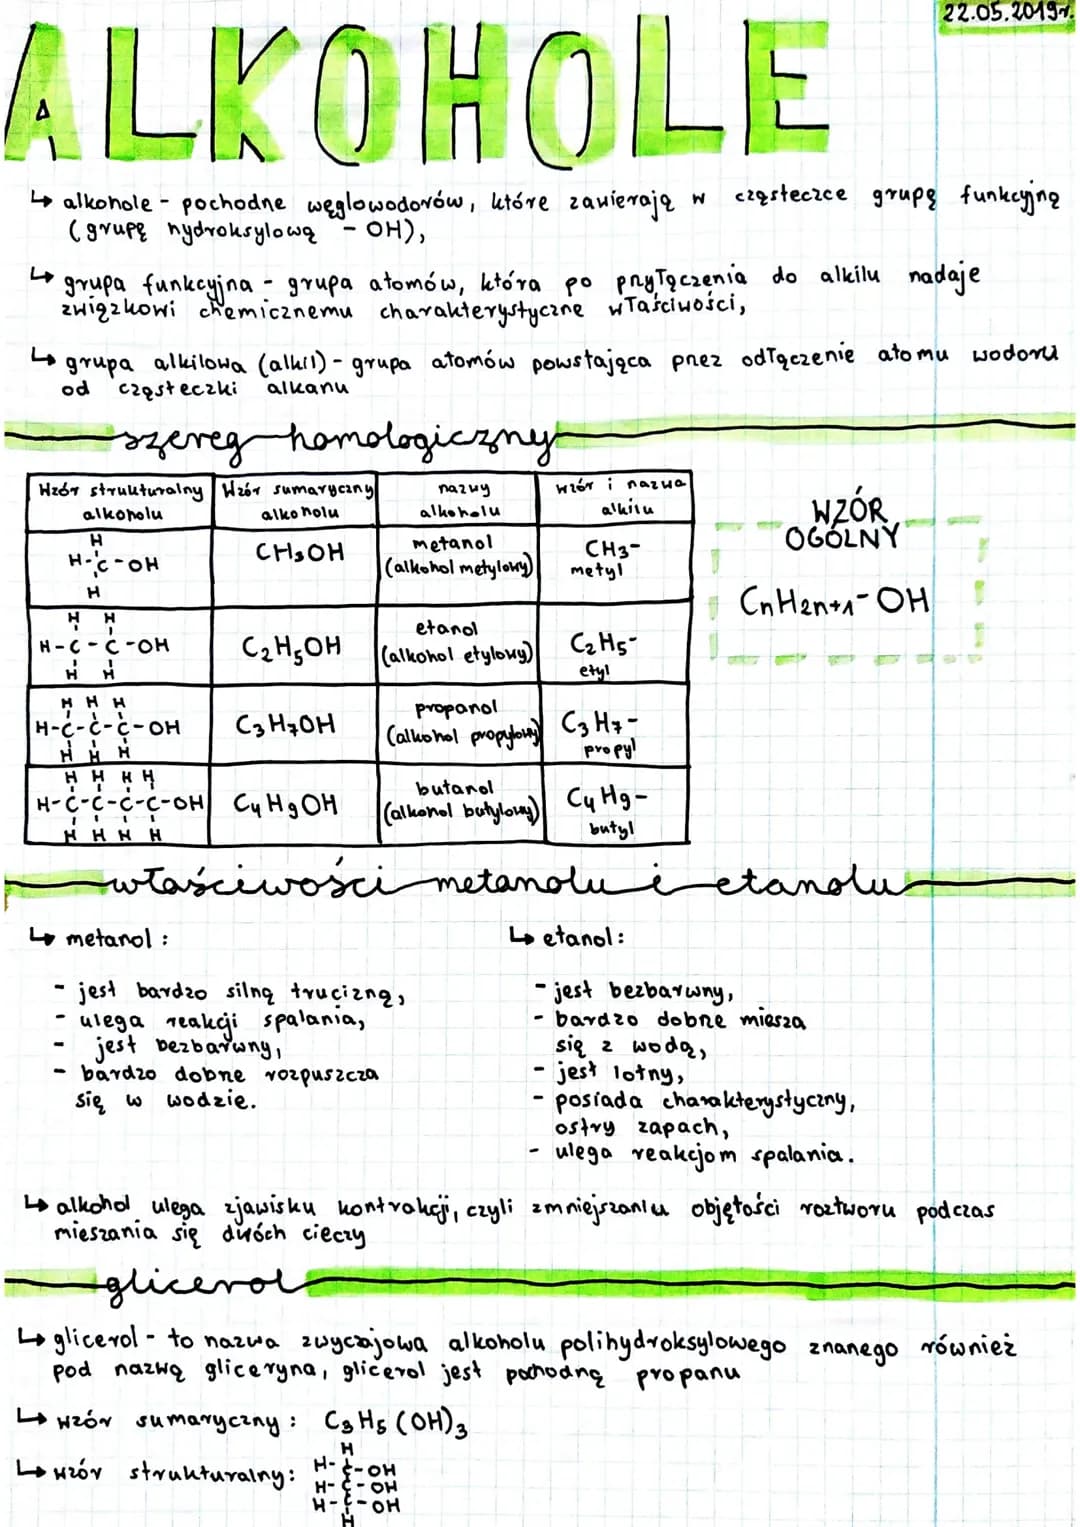 22.05.2019r.
ALKOHOLE
↳ alkohole - pochodne węglowodorów, które zawierają w cząsteczce grupę funkcyjną
(grupę hydroksylową - OH),
↳ grupa funkcyjna - grupa atomów, która po przyłączenia do alkilu nadaje
związkowi chemicznemu charakterystyczne właściwości,
↳ grupa alkilowa (alkil) - grupa atomów powstająca przez odłączenie atomu wodoru
od cząsteczki alkanu
szereg homologiczny
Wzór strukturalny alkoholu | Wzór sumaryczny alkoholu | nazwy alkoholu | wzór i nazwa alkilu
H
H-C-OH
H
CH₃OH
metanol
(alkohol metylowy)
CH₃-
metyl
H H
H-C-C-OH
H H
C₂H₅OH
etanol
(alkohol etylowy)
C₂H₅-
etyl
H H H
H-C-C-C-OH
H H H
C₃H₇OH
propanol
(alkohol propylowy)
C₃H₇-
propyl
H H H H
H-C-C-C-C-OH
H H H H
C₄H₉OH
butanol
(alkohol butylowy)
C₄H₉-
butyl
WZÓR
OGÓLNY
CnH2n+1-OH
właściwości metanolu i etanolu
↳ metanol:
- jest bardzo silną trucizną,
- ulega reakcji spalania,
- jest bezbarwny,
- bardzo dobrze rozpuszcza
się w wodzie.
↳ etanol:
- jest bezbarwny,
- bardzo dobrze miesza
się z wodą,
- jest lotny,
- posiada charakterystyczny,
ostry zapach,
- ulega reakcjom spalania.
↳ alkohol ulega zjawisku kontrakcji, czyli zmniejszaniu objętości roztworu podczas
mieszania się dwóch cieczy
glicerol
↳ glicerol - to nazwa zwyczajowa alkoholu polihydroksylowego znanego również
pod nazwą gliceryna, glicerol jest pochodną propanu
↳ wzór sumaryczny: C₃H₅(OH)₃
↳ wzór strukturalny:
H
H-C-OH
H-C-OH
H-C-OH
H